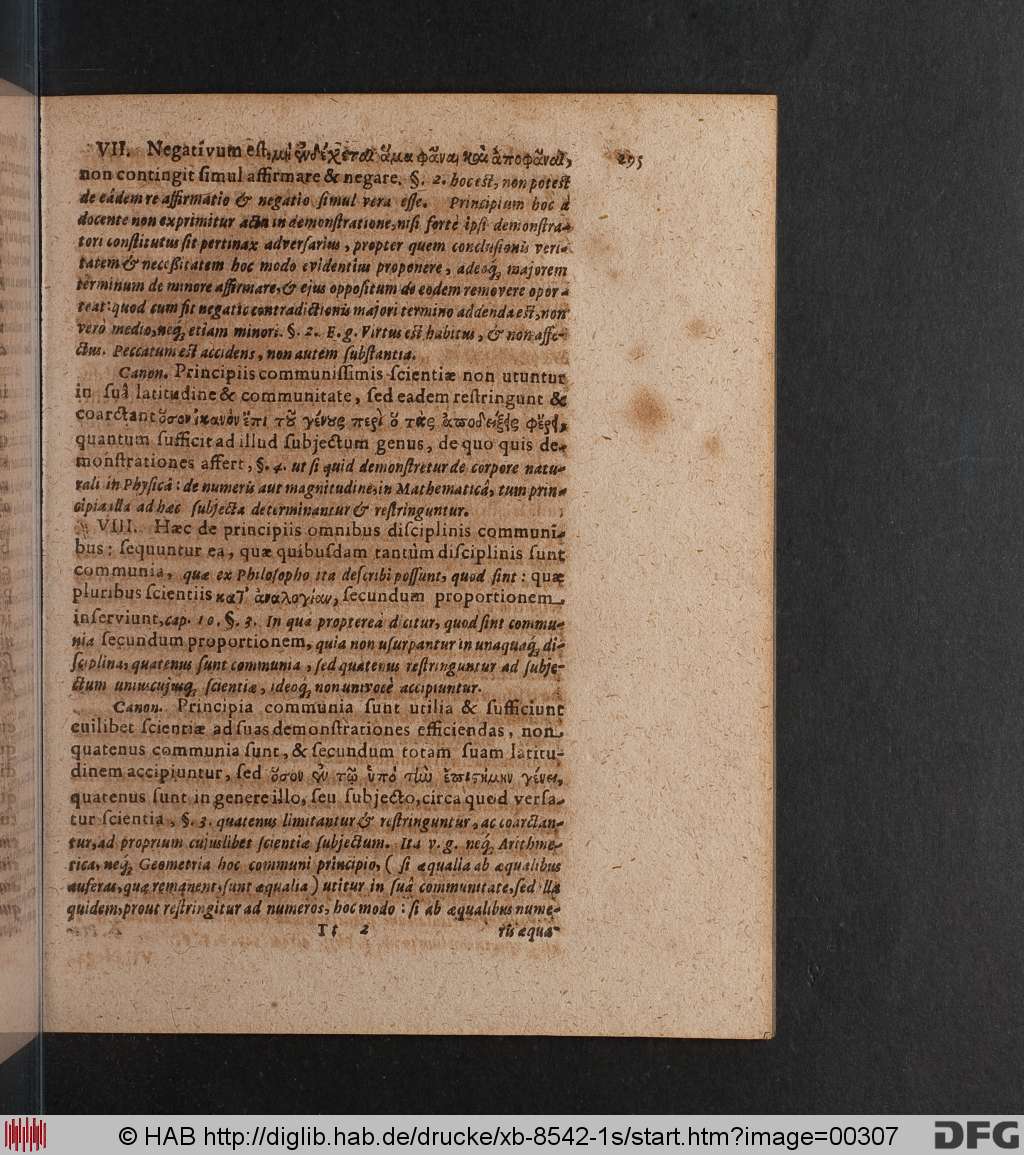 295
VII. Negativum est, μὴ ἐνδέχεται ἅμα φάναι καὶ ἀποφάναι,
non contingit ſimul affirmare & negare. §. 2. hoc eſt, non poteſt
de eâdem re affirmatio & negatio ſimul vera eſſe. Principium hoc à
docente non exprimitur actu in demonſtratione, niſi fortè ipſi demonſtra-
tori conſtitutus ſit pertinax adverſarius, propter quem concluſionis veri-
tatem & neceſſitatem hoc modo evidentius proponere, adeoq́; majorem
terminum de minore affirmare, & ejus oppoſitum de eodem removere opor-
teat: quod cum fit negatio contradictionis majori termino addenda eſt, non
verò medio, neq́; etiam minori. §. 2. E. g. Virtus eſt habitus, & non affe-
ctus. Peccatum eſt accidens, non autem ſubſtantia.
Canon. Principiis communiſſimis ſcientiæ non utuntur
in ſuâ latitudine & communitate, ſed eadem reſtringunt &
coarctant ὅσον ἱκανὸν ἐπὶ τοῦ γένους περὶ ὃ τὰς ἀποδείξεις φέρει,
quantum ſufficit ad illud ſubjectum genus, de quo quis de-
monſtrationes affert, §. 4. ut ſi quid demonſtretur de corpore natu-
rali in Phyſicâ: de numeris aut magnitudine, in Mathematicâ, tum prin-
cipia illa ad hæc ſubjecta determinantur & reſtringuntur.
VIII. Hæc de principiis omnibus diſciplinis communi-
bus: ſequuntur ea, quæ quibuſdam tantùm diſciplinis ſunt
communia, quæ ex Philoſopho ita deſcribi poſſunt, quod ſint: quæ
pluribus ſcientiis κατ' ἀναλογίαν, ſecundum proportionem
inſerviunt, cap. 10. §. 3. In qua propterea dicitur, quod ſint commu-
nia ſecundum proportionem, quia non uſurpantur in unaquaq́; di-
ſciplina, quatenus ſunt communia, ſed quatenus reſtringuntur ad ſubje-
ctum uniuscujuſq́; ſcientiæ, ideoq́; non univocè accipiuntur.
Canon. Principia communia ſunt utilia & ſufficiunt
cuilibet ſcientiæ ad ſuas demonſtrationes efficiendas, non
quatenus communia ſunt, & ſecundum totam ſuam latitu-
dinem accipiuntur, ſed ὅσον ἐν τῷ ὑπὸ τὴν ἐπιστήμην γένει,
quatenus ſunt in genere illo, ſeu ſubjecto, circa quod verſa-
tur ſcientia, §. 3. quatenus limitantur & reſtringuntur, ac coarctan-
tur, ad proprium cujuslibet ſcientiæ ſubjectum. Ita v. g. neq́; Arithme-
tica, neq́; Geometria hoc communi principio, (ſi æqualia ab æqualibus
auferas, quæ remanent, ſunt æqualia) utitur in ſuâ communitate, ſed illa
quidem, prout reſtringitur ad numeros, hoc modo: ſi ab æqualibus nume-
Tt 2 ris æqua-
© HAB http://diglib.hab.de/drucke/xb-8542-1s/start.htm?image=00307
DFG